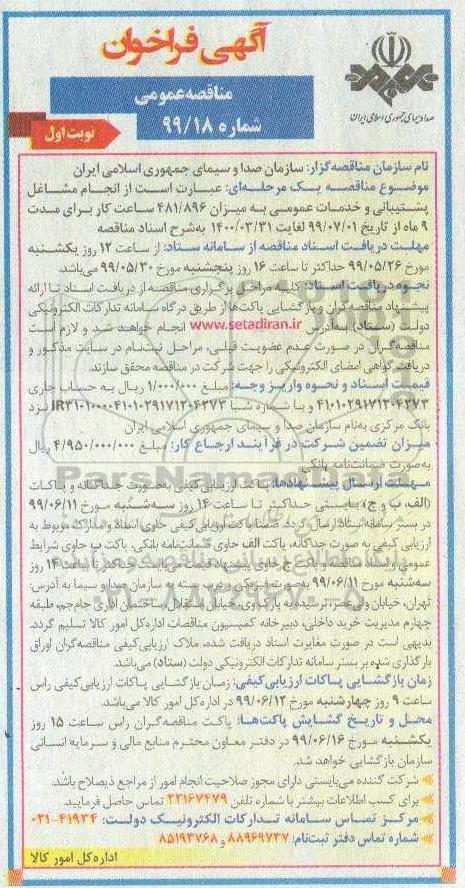 آگهی فراخوان
صدا و سیمای جمهوری اسلامی ایران
مناقصه عمومی
شماره ۹۹/۱۸
نوبت اول
نام سازمان مناقصه‌گزار: سازمان صدا و سیمای جمهوری اسلامی ایران
موضوع مناقصه یک مرحله‌ای: عبارت است از انجام مشاغل
پشتیبانی و خدمات عمومی به میزان ۴۸۱/۸۹۶ ساعت کار برای مدت
۹ ماه از تاریخ ۹۹/۰۷/۰۱ لغایت ۱۴۰۰/۰۳/۳۱ به‌شرح اسناد مناقصه
مهلت دریافت اسناد مناقصه از سامانه ستاد: از ساعت ۱۲ روز یکشنبه
مورخ ۹۹/۰۵/۲۶ حداکثر تا ساعت ۱۶ روز پنجشنبه مورخ ۹۹/۰۵/۳۰ می‌باشد.
نحوه دریافت اسناد: کلیه مراحل برگزاری مناقصه از دریافت اسناد تا ارائه
پیشنهاد مناقصه‌گران و بازگشایی پاکت‌ها از طریق درگاه سامانه تدارکات الکترونیکی
دولت (ستاد) به‌آدرس www.setadiran.ir انجام خواهد شد و لازم است
مناقصه‌گران در صورت عدم عضویت قبلی، مراحل ثبت‌نام در سایت مذکور و
دریافت گواهی امضای الکترونیکی را جهت شرکت در مناقصه محقق سازند.
قیمت اسناد و نحوه واریز وجه: مبلغ ۱/۰۰۰/۰۰۰ ریال به حساب جاری
۴۱۰۱۰۲۹۱۷۱۲۰۴۲۷۳ و یا شماره شبا نزد
بانک مرکزی به‌نام سازمان صدا و سیمای جمهوری اسلامی ایران
میزان تضمین شرکت در فرآیند ارجاع کار: مبلغ ۴/۹۵۰/۰۰۰/۰۰۰ ریال
به‌صورت ضمانت‌نامه بانکی
مهلت ارسال پیشنهادها: پاکت ارزیابی کیفی به‌صورت جداگانه و پاکات
(الف، ب و ج) بایستی حداکثر تا ساعت ۱۴ روز سه‌شنبه مورخ ۹۹/۰۶/۱۱
در بستر سامانه ستاد ارسال گردد. ضمناً پاکت ارزیابی کیفی حاوی اسناد و مدارک مربوط به
ارزیابی کیفی به صورت جداگانه، پاکت الف حاوی ضمانت‌نامه بانکی، پاکت ب حاوی شرایط
عمومی اسناد مناقصه و پاکت ج حاوی پیشنهاد قیمت می‌بایست حداکثر تا ساعت ۱۴ روز
سه‌شنبه مورخ ۹۹/۰۶/۱۱ به‌صورت فیزیکی و دربسته به سازمان صدا و سیما به آدرس:
تهران، خیابان ولی‌عصر، نرسیده به پارک‌وی، خیابان استقلال، ساختمان اداری جام‌جم، طبقه
چهارم مدیریت خرید داخلی، دبیرخانه کمیسیون مناقصات اداره‌کل امور کالا تسلیم گردد.
بدیهی است در صورت مغایرت اسناد دریافت شده، ملاک ارزیابی کیفی مناقصه‌گران اوراق
بارگذاری شده بر بستر سامانه تدارکات الکترونیکی دولت (ستاد) می‌باشد.
زمان بازگشایی پاکات ارزیابی کیفی: زمان بازگشایی پاکات ارزیابی کیفی راس
ساعت ۹ روز چهارشنبه مورخ ۹۹/۰۶/۱۲ در اداره‌کل امور کالا می‌باشد.
محل و تاریخ گشایش پاکت‌ها: پاکت مناقصه‌گران راس ساعت ۱۵ روز
یکشنبه مورخ ۹۹/۰۶/۱۶ در دفتر معاون محترم منابع مالی و سرمایه انسانی
سازمان بازگشایی خواهد شد.
شرکت کننده می‌بایستی دارای مجوز صلاحیت انجام امور از مراجع ذیصلاح باشد.
برای کسب اطلاعات بیشتر با شماره تلفن ۲۲۱۶۷۴۷۹ تماس حاصل فرمایید.
مرکز تماس سامانه تدارکات الکترونیک دولت: ۴۱۹۳۴-۰۲۱
شماره تماس دفتر ثبت‌نام: ۸۸۹۶۹۷۳۷ و ۸۵۱۹۳۷۶۸
اداره کل امور کالا